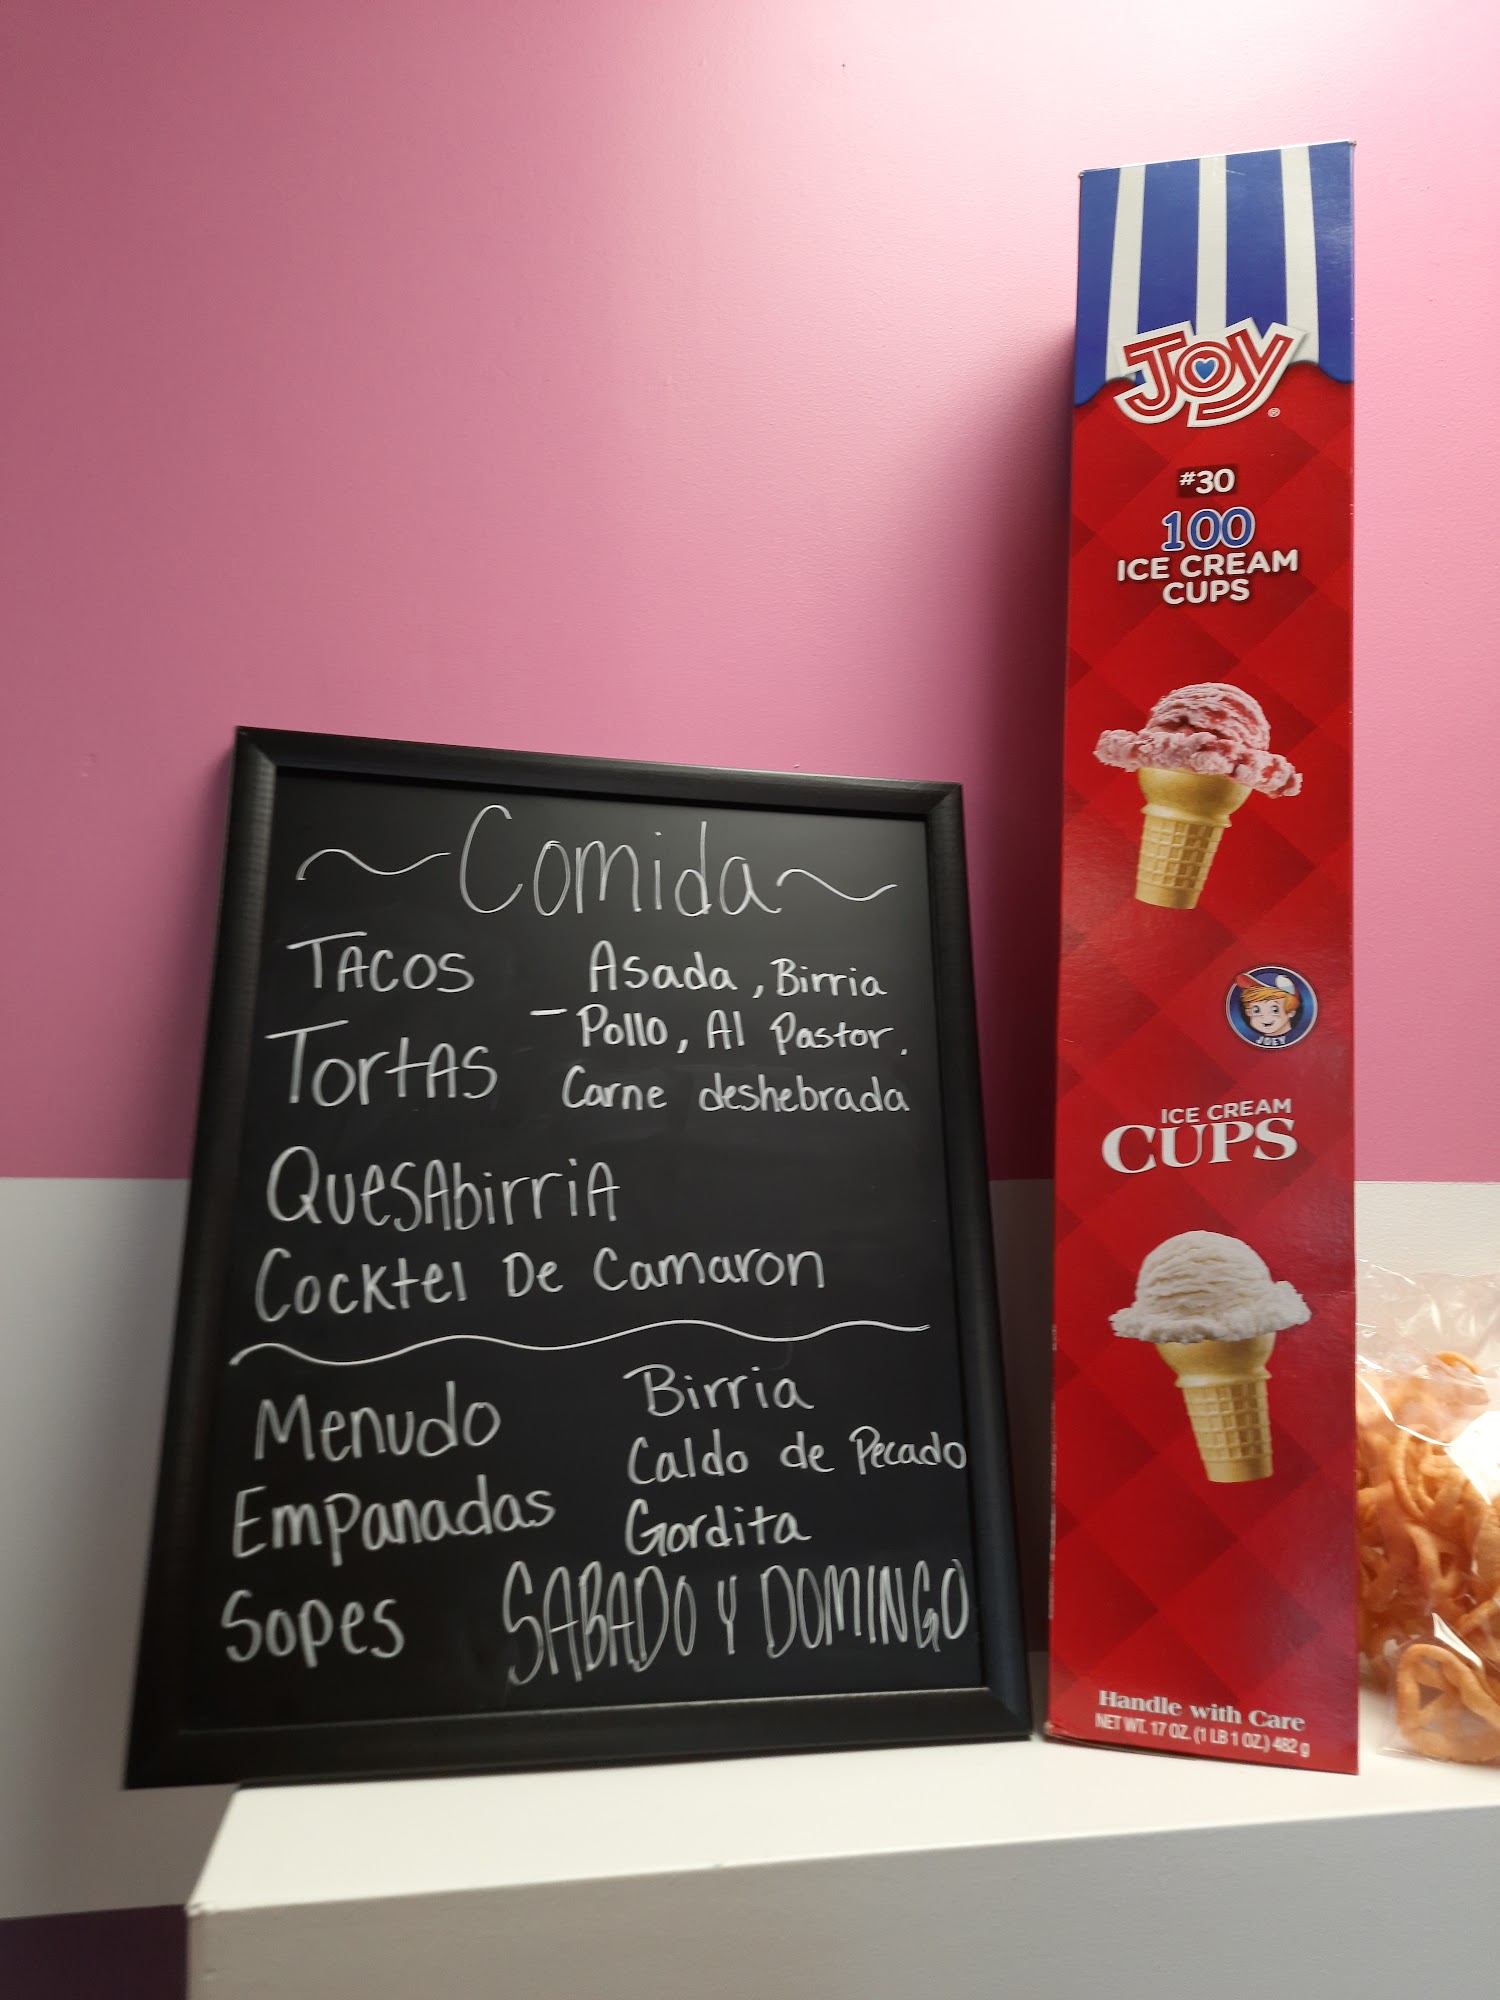 ~Comida~
TACOS
Asada, Birria
- Pollo, Al Pastor,
Tortas
Carne deshebrada
Quesabirria
Cocktel De Camaron
Menudo
Birria
Caldo de Pecado
Empanadas
Gordita
Sopes
SABADO Y DOMINGO
JOY®
#30
100
ICE CREAM
CUPS
JOEY
ICE CREAM
CUPS
Handle with Care
NET WT. 17 OZ. (1 LB 1 OZ.) 482 g